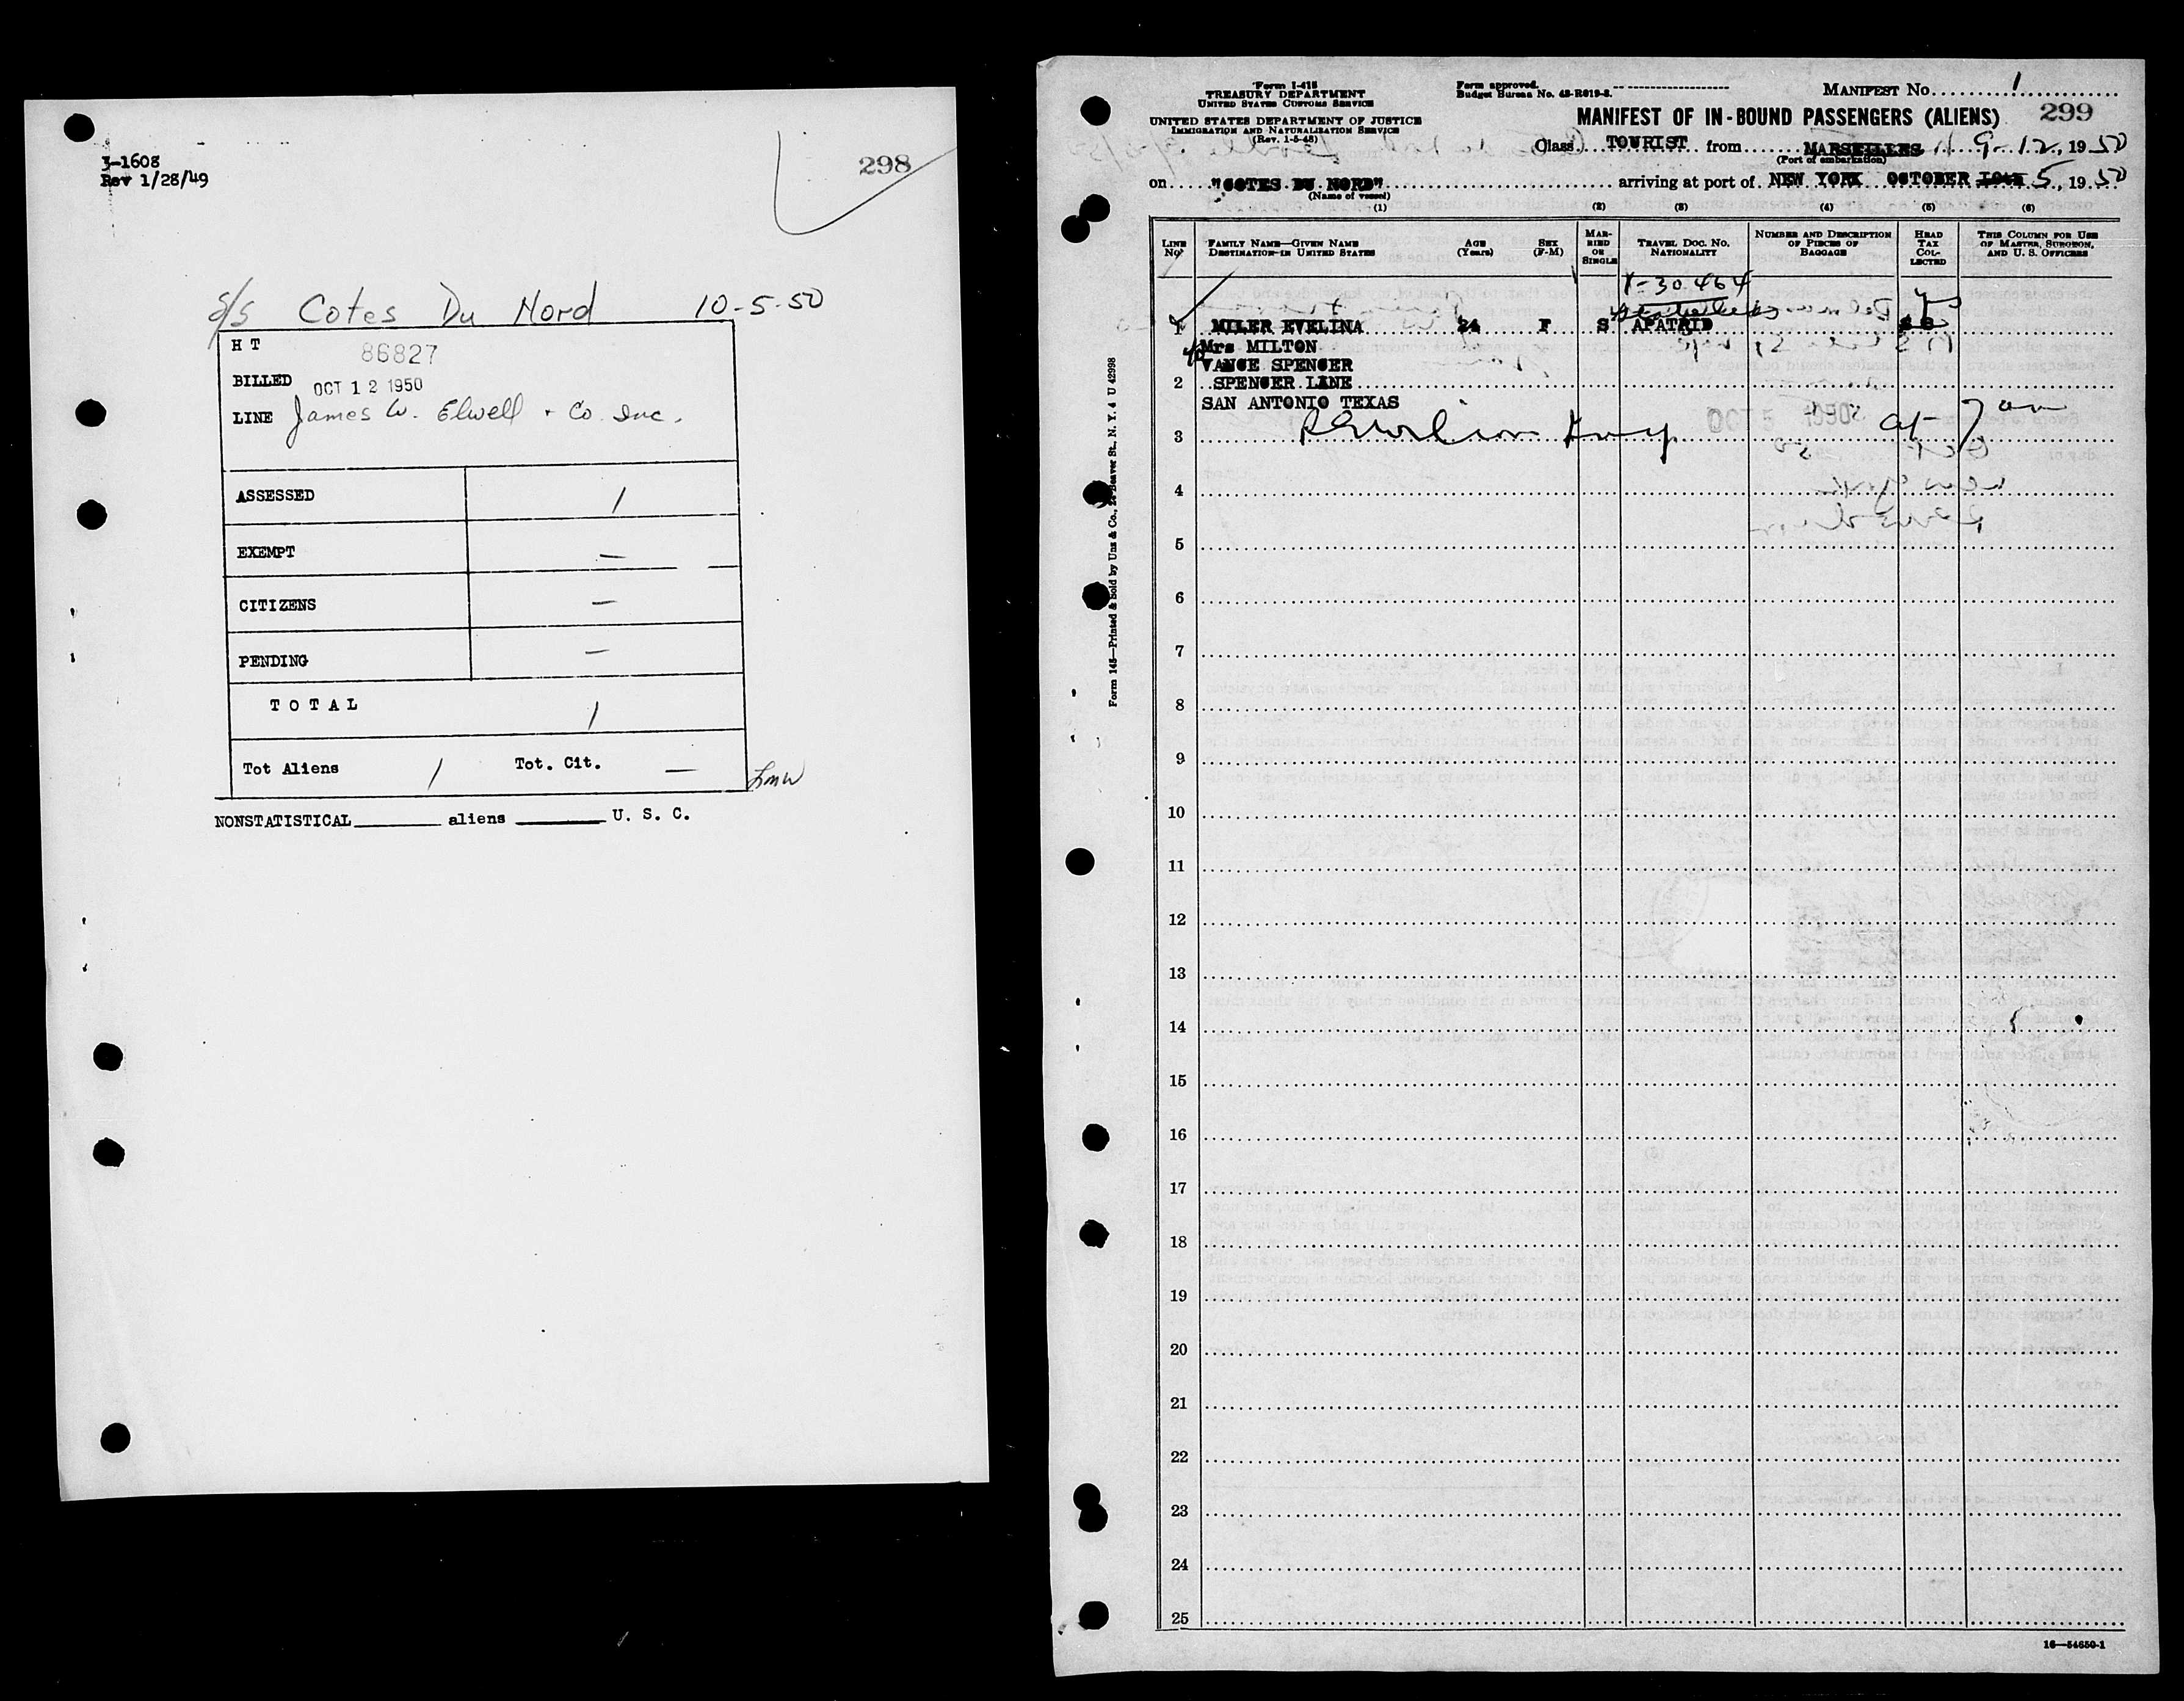 3-1608
Rev 1/28/49
298
S/S Cotes Du Nord 10-5-50
H T 86827
BILLED OCT 12 1950
LINE James W. Elwell + Co. Inc.
ASSESSED 1
EXEMPT —
CITIZENS —
PENDING —
TOTAL 1
Tot Aliens 1 Tot. Cit. —
LMW
NONSTATISTICAL aliens U. S. C.
Form I-415
TREASURY DEPARTMENT
UNITED STATES CUSTOMS SERVICE
UNITED STATES DEPARTMENT OF JUSTICE
IMMIGRATION AND NATURALIZATION SERVICE
(Rev. 1-5-48)
Form approved.
Budget Bureau No. 43-R019-3.
MANIFEST No. 1
MANIFEST OF IN-BOUND PASSENGERS (ALIENS) 299
Class TOURIST from MARSEILLES 9-12, 1950
(Port of embarkation)
on "COTES DU NORD" arriving at port of NEW YORK OCTOBER 5, 1950
(Name of vessel)
(1) (2) (3) (4) (5) (6)
LINE No. FAMILY NAME—GIVEN NAME DESTINATION IN UNITED STATES AGE (Years) SEX (F-M) MARRIED OR SINGLE TRAVEL DOC. No. NATIONALITY NUMBER AND DESCRIPTION OF PIECES OF BAGGAGE HEAD TAX COLLECTED THIS COLUMN FOR USE OF MASTER, SURGEON, AND U. S. OFFICERS
V-30464
yes
MILER EVELINA 24 F S APATRID
Mrs MILTON
VANCE SPENCER
2 SPENCER LANE
SAN ANTONIO TEXAS
OCT 5 1950
3
4
5
6
7
8
9
10
11
12
13
14
15
16
17
18
19
20
21
22
23
24
25
Form 145—Printed & Sold by Unz & Co., 24 Beaver St., N. Y. 4 U 42998
16—54650-1